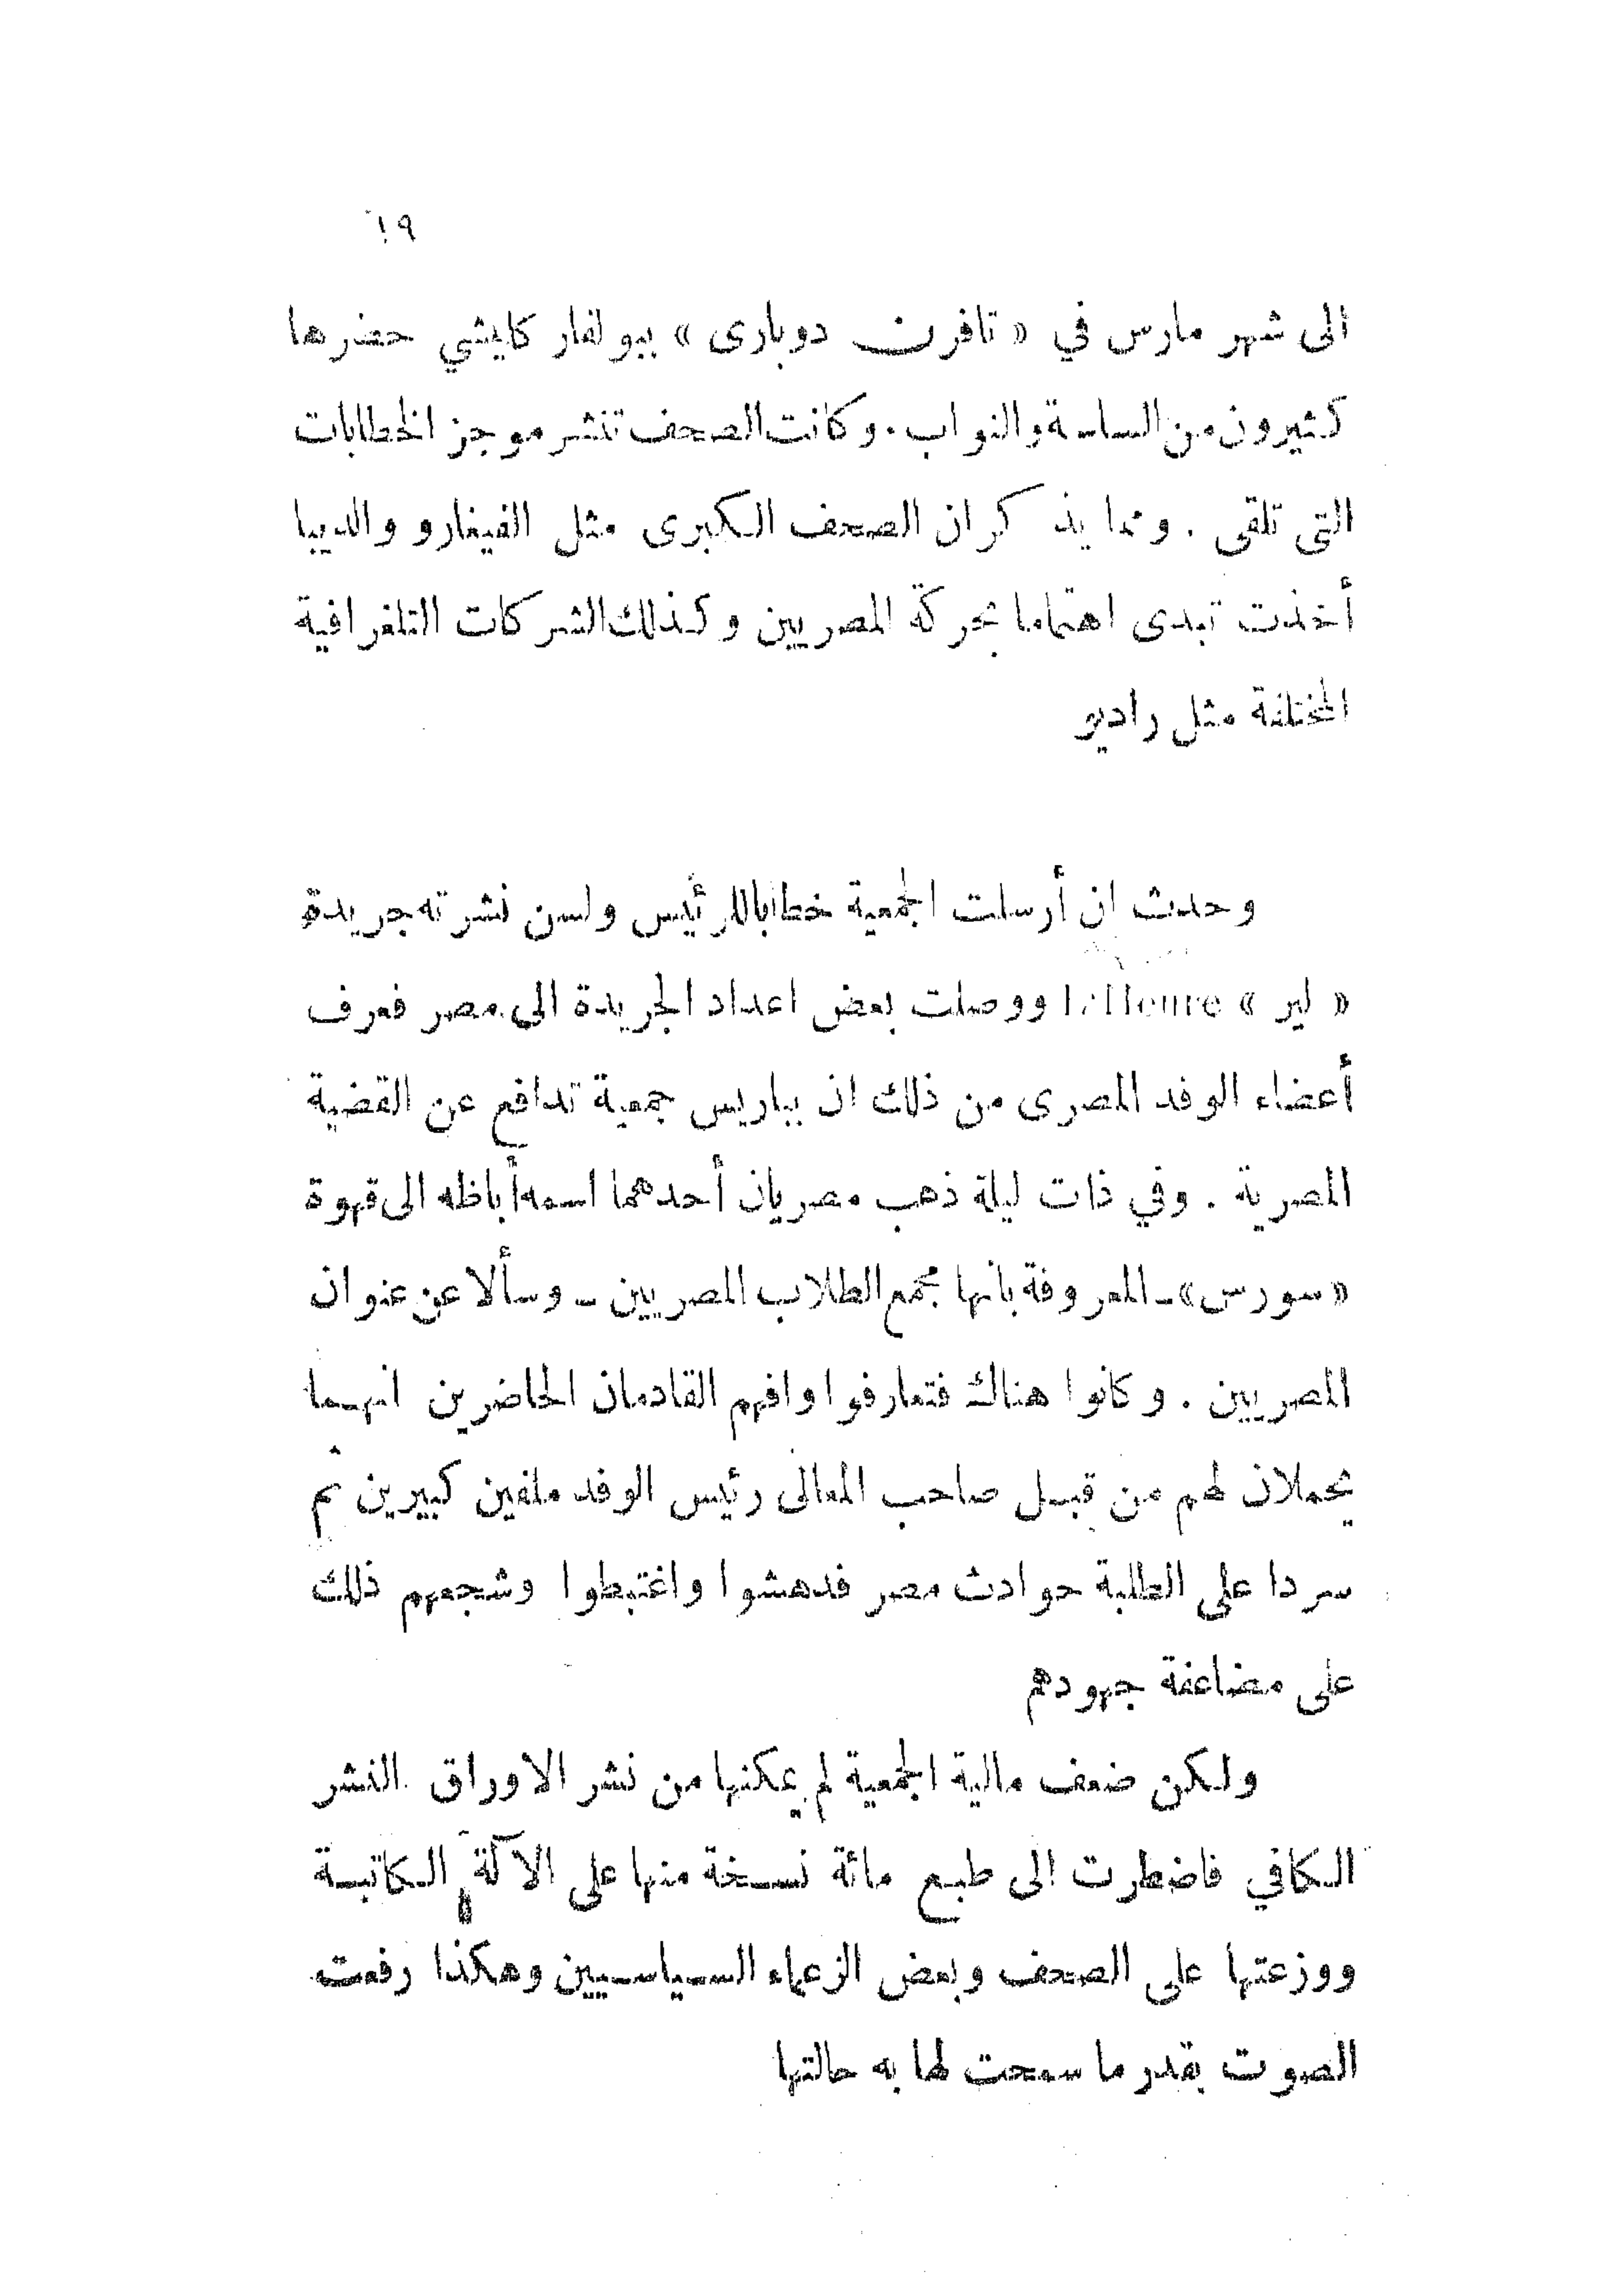 ١٩
الى شهر مارس في « تافرن دوبارى » ببولفار كليشي حضرها
كثيرون من الساسة والنواب . وكانت الصحف تنشر موجز الخطابات
التى تلقى . ومما يذكر ان الصحف الكبرى مثل الفيغارو والديبا
أخذت تبدى اهتماما بحركة المصريين وكذلك الشركات التلغرافية
المختلفة مثل راديو
وحدث ان أرسلت الجمعية خطابا للرئيس ولسن نشرته جريدة
« لير » L'Heure ووصلت بعض اعداد الجريدة الى مصر فعرف
أعضاء الوفد المصرى من ذلك ان بباريس جمعية تدافع عن القضية
المصرية . وفي ذات ليلة ذهب مصريان أحدهما اسمه أباظه الى قهوة
« سورس» ـ المعروفة بانها مجمع الطلاب المصريين ـ وسألا عن عنوان
المصريين . وكانوا هناك فتعارفوا وافهم القادمان الحاضرين انهما
يحملان لهم من قبل صاحب المعالى رئيس الوفد ملفين كبيرين ثم
سردا على الطلبة حوادث مصر فدهشوا واغتبطوا وشجعهم ذلك
على مضاعفة جهودهم
ولكن ضعف مالية الجمعية لم يمكنها من نشر الاوراق النشر
الكافي فاضطرت الى طبع مائة نسخة منها على الآلة الكاتبة
ووزعتها على الصحف وبعض الزعماء السياسيين وهكذا رفعت
الصوت بقدر ما سمحت لها به حالتها